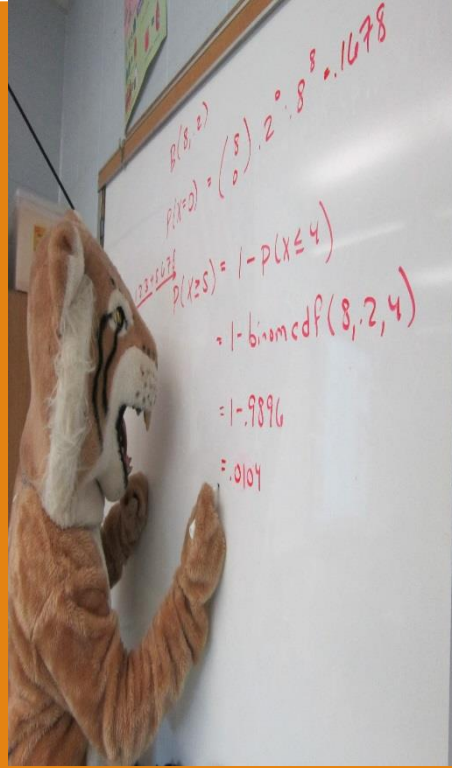 B(8,.2)
P(X=0) = (8 0) · .2⁰ · .8⁸ = .1678
12345678
P(X≥5) = 1 - P(X≤4)
= 1 - binomcdf(8,.2,4)
= 1 - .9896
= .0104